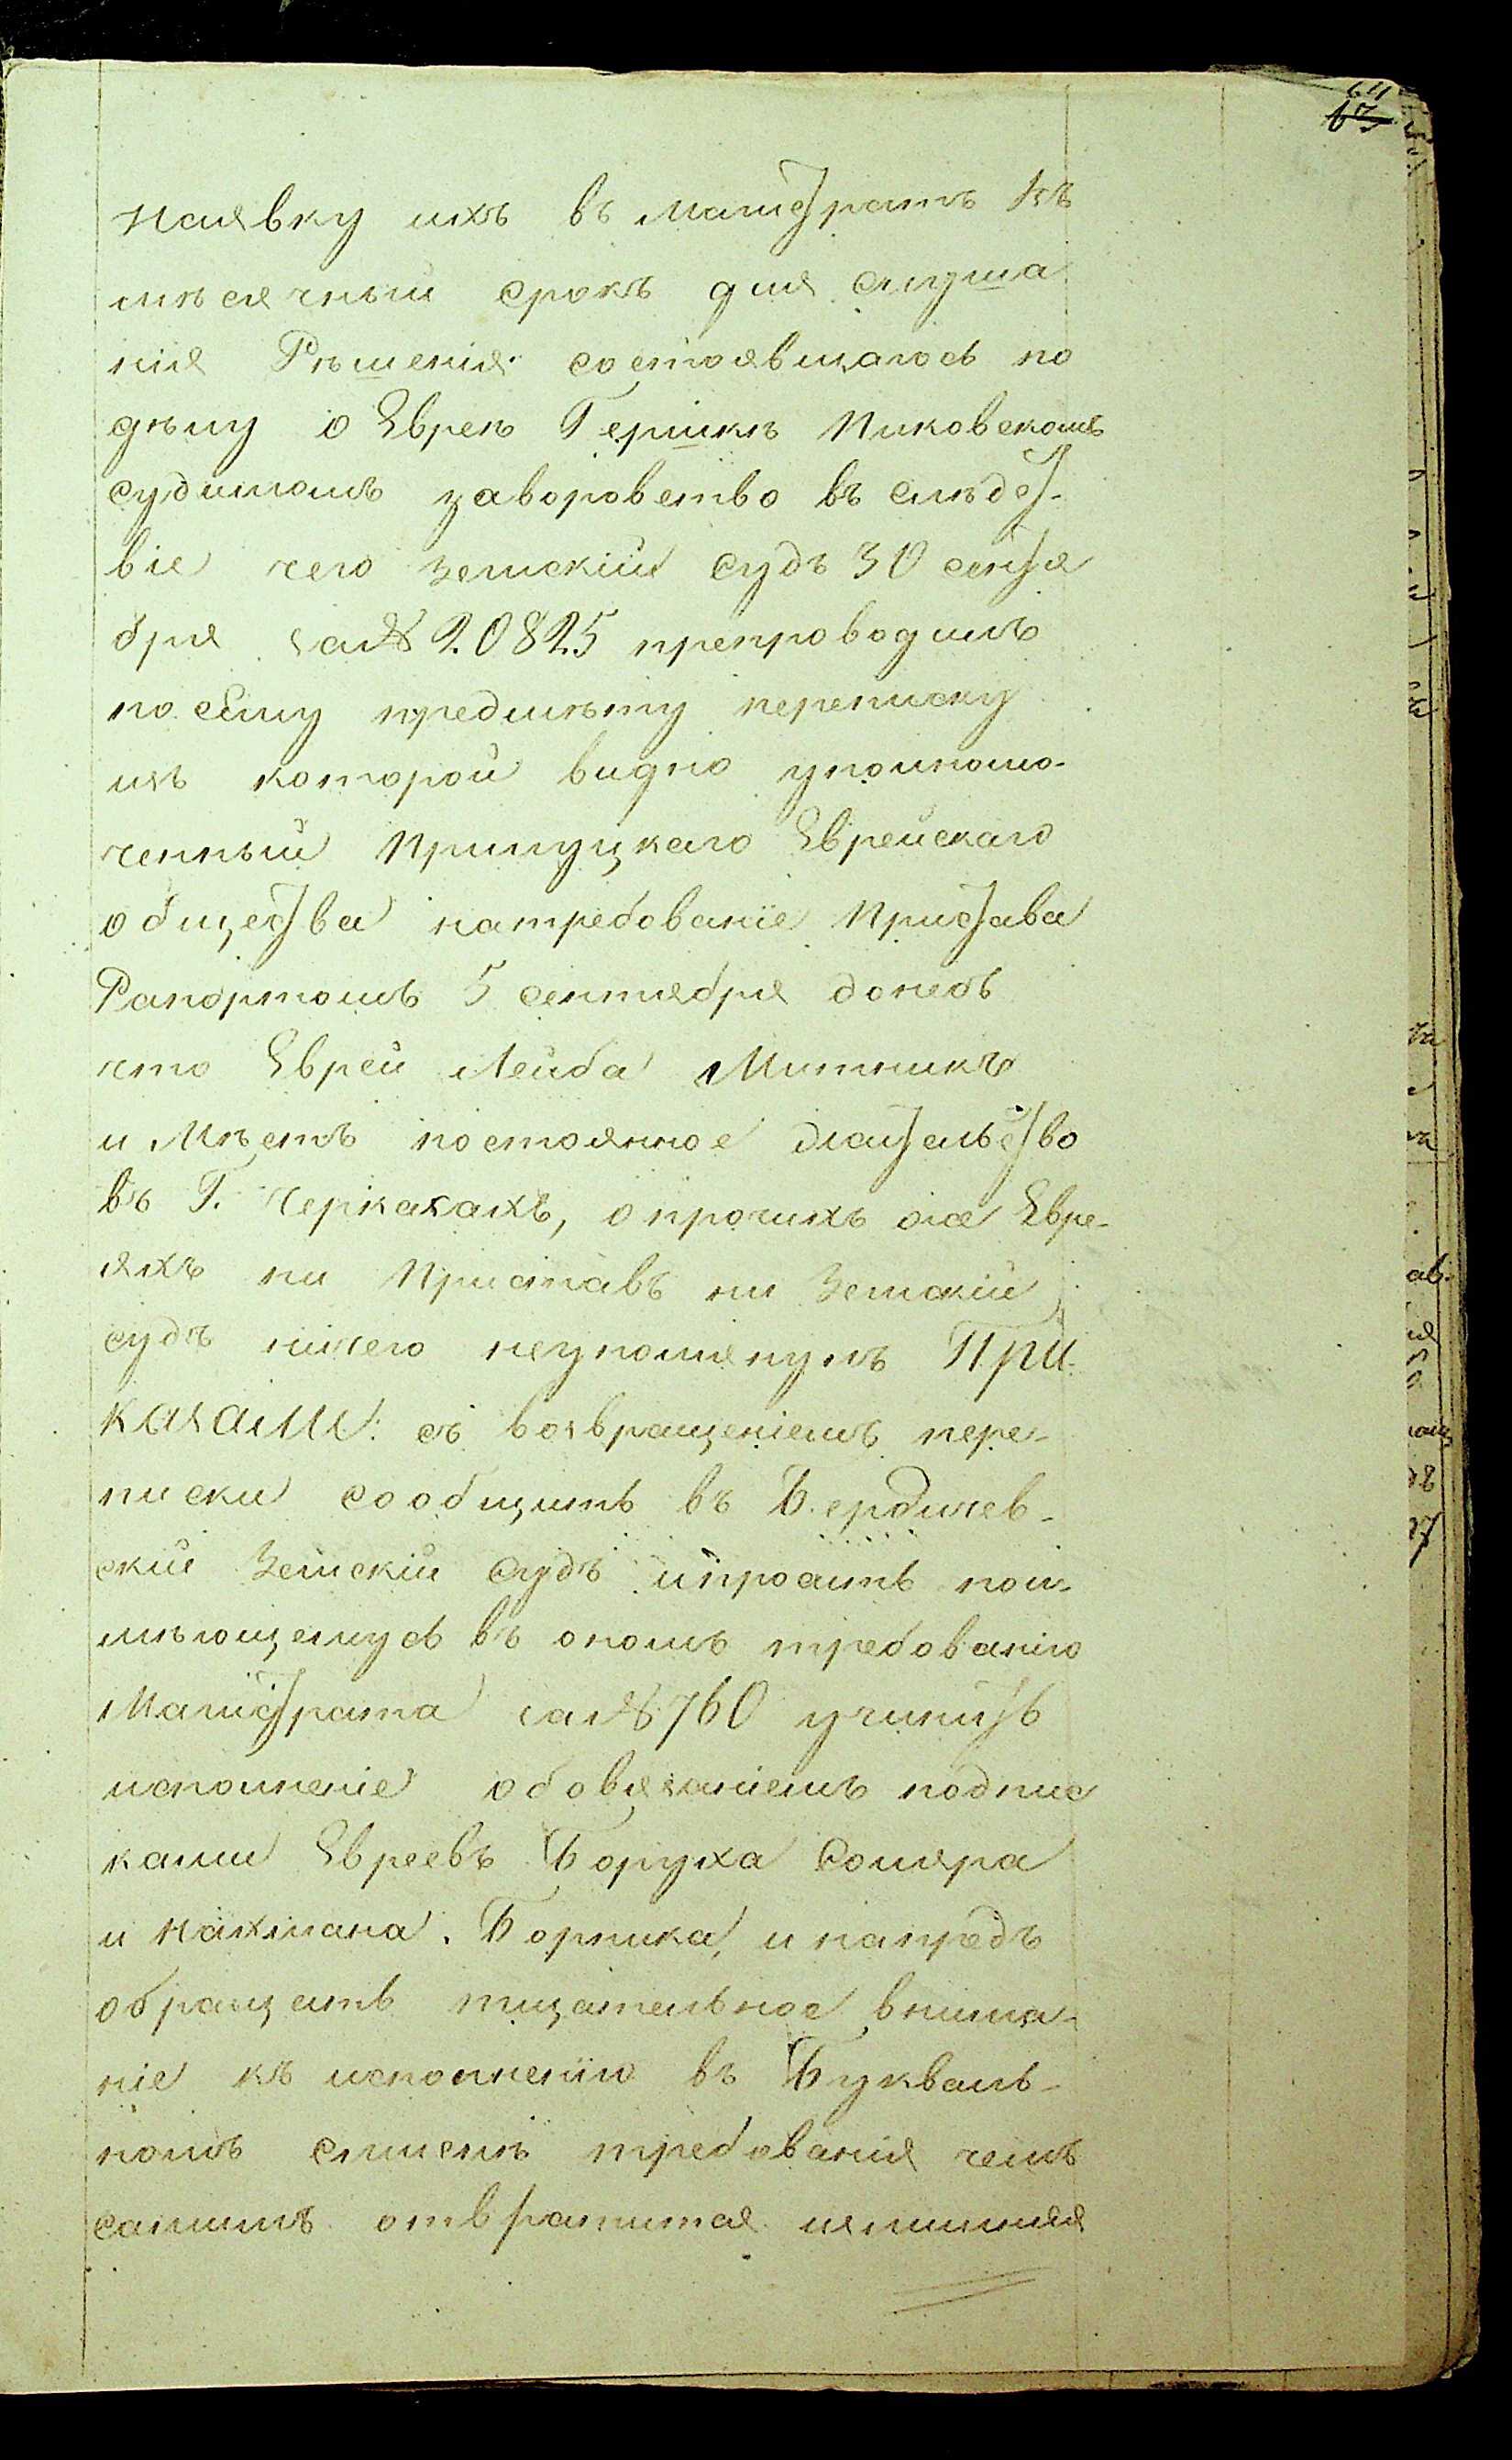 64
63
наявку ихъ въ Магистратъ къ
мѣсячный срокъ для слуша
нія Рѣшенія состоявшагося по
дѣлу о Евреѣ Гершкѣ Пиковскомъ
судимомъ заворовство въ слѣдст-
віе чего Земскій Судъ 30 сентя
бря за № 20825 препроводилъ
по сему предмѣту переписку
изъ которой видно уполномо-
ченный Прилуцкаго Еврейскаго
общества натребованіе Пристава
Рапортомъ 5 сентября донесъ
что Еврей Лейба Митникъ
и Мѣетъ постоянное жительство
въ Г. Черкасахъ, о прочихъ же Евре-
яхъ ни Приставъ ни Земскій
судъ ничего неупомянулъ При-
казали: съ возвращеніемъ пере-
писки сообщить въ Бердичев-
скій Земскій Судъ ипросить пои-
мѣющемуся въ ономъ требованію
Магистрата за № 760 учинить
исполненіе обовязаніемъ подпис
ками Евреевъ Боруха Соляра
и Нахмана Борника, и напредъ
обращать тщательное внима-
ніе къ исполненію въ Букваль-
номъ смыслѣ требованія чемъ
самимъ отвратится излишняя